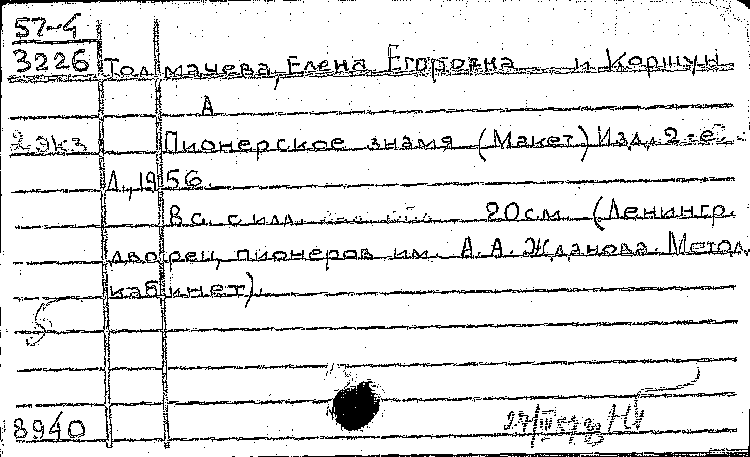 57-4
3226 Толмачева, Елена Егоровна и Коршун
А
2 экз Пионерское знамя (Макет) Изд. 2-е.
Л., 1956.
8 с. с илл. 20см. (Ленингр.
дворец пионеров им. А.А. Жданова. Метод.
кабинет).
8940